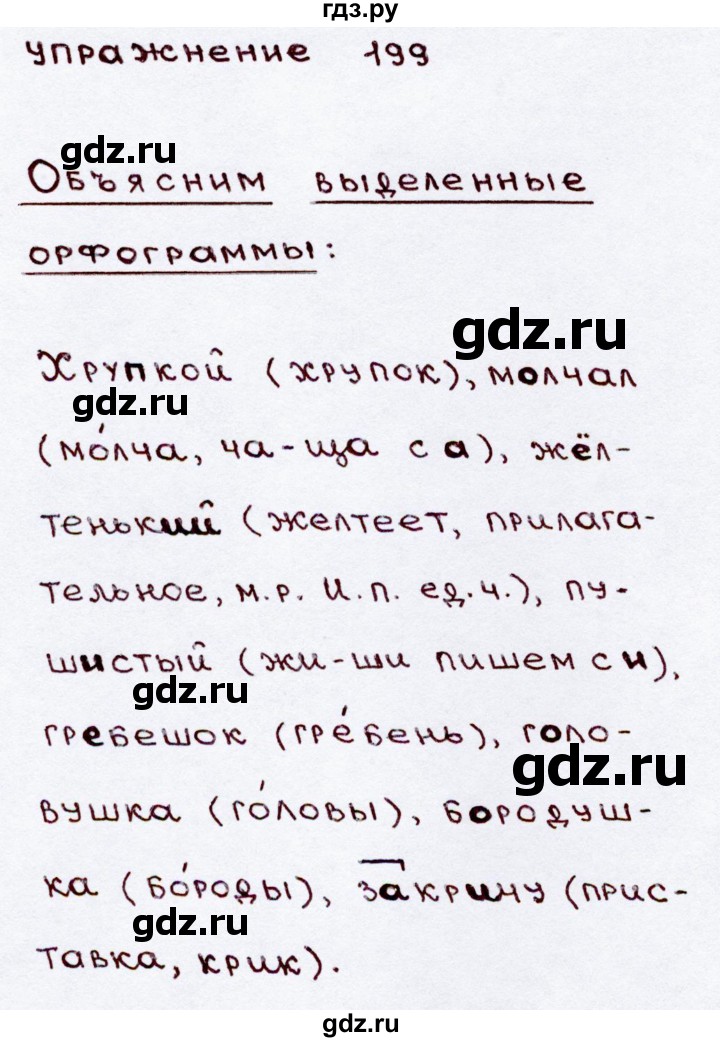 гдз.ру
упражнение 199
gdz.ru
Объясним выделенные
орфограммы:
gdz.ru
Хрупкой (хрупок), молчал
gdz.ru
(мо́лча, ча-ща с а), жёл-
теньκий (желтеет, прилага-
тельное, м.р. И.п. ед.ч.), пу-
шистый (жи-ши пишем с и),
gdz.ru
гребешок (гре́бень), голо-
gdz.ru
вушка (го́ловы), бородуш-
ка (бо́роды), закричу (прис-
gdz.ru
тавка, крик).
gdz.ru